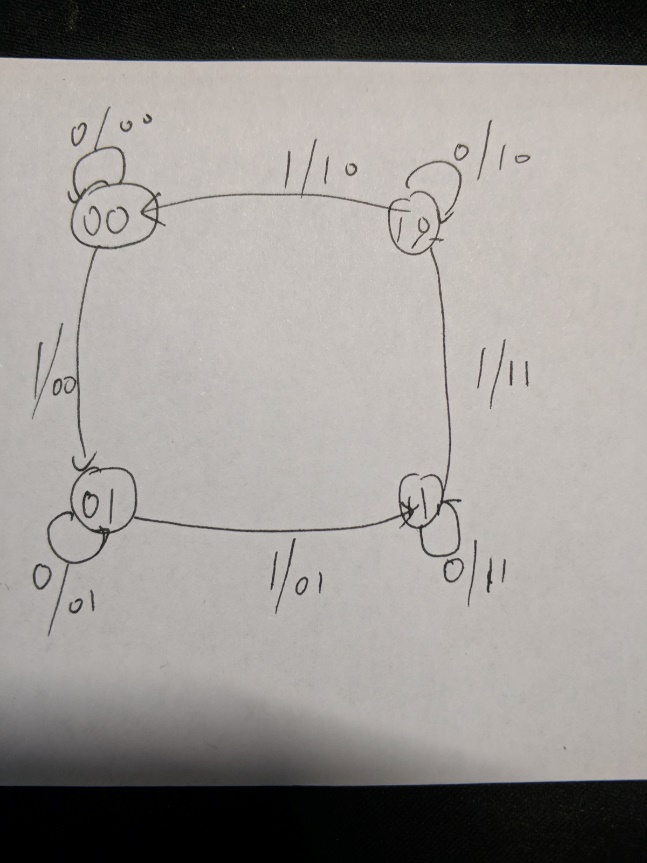 0/00
1/10
0/10
00
10
1/00
1/11
01
11
0/01
1/01
0/11